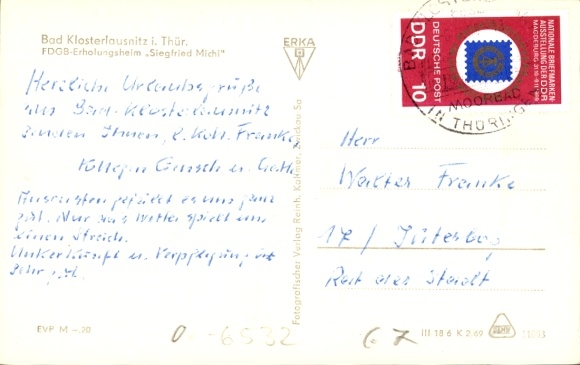 Bad Klosterlausnitz i. Thür.
FDGB-Erholungsheim „Siegfried Michl"
ERKA
Herzliche Urlaubsgrüße
aus Bad-Klosterlausnitz
senden Ihnen, Koll. Franke,
Kollegin u.
Ansonsten gefällt es uns ganz
gut. Nur das Wetter spielt uns
einen Streich.
Unterkunft u. Verpflegung ist
sehr gut.
EVP M -,20
Fotografischer Verlag Reinh. Kallmer, Zwickau Sa
NATIONALE BRIEFMARKEN-
AUSSTELLUNG DER DDR
MAGDEBURG 31.10.-9.11.1969
DEUTSCHE POST
DDR 10
MOORBAD
IN THÜRINGEN
Herr
Walter Franke
17 / Jüterbog
Rat der Stadt
6522
67
III 18 6 K 2 69